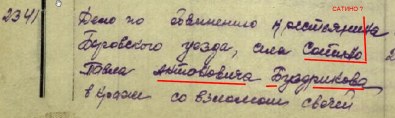 САТИНО ?
234) Дело по обвинению крестьянина
Боровского уезда, села Сатино
Павла Антоновича Бундрикова
в краже со взломом свечей